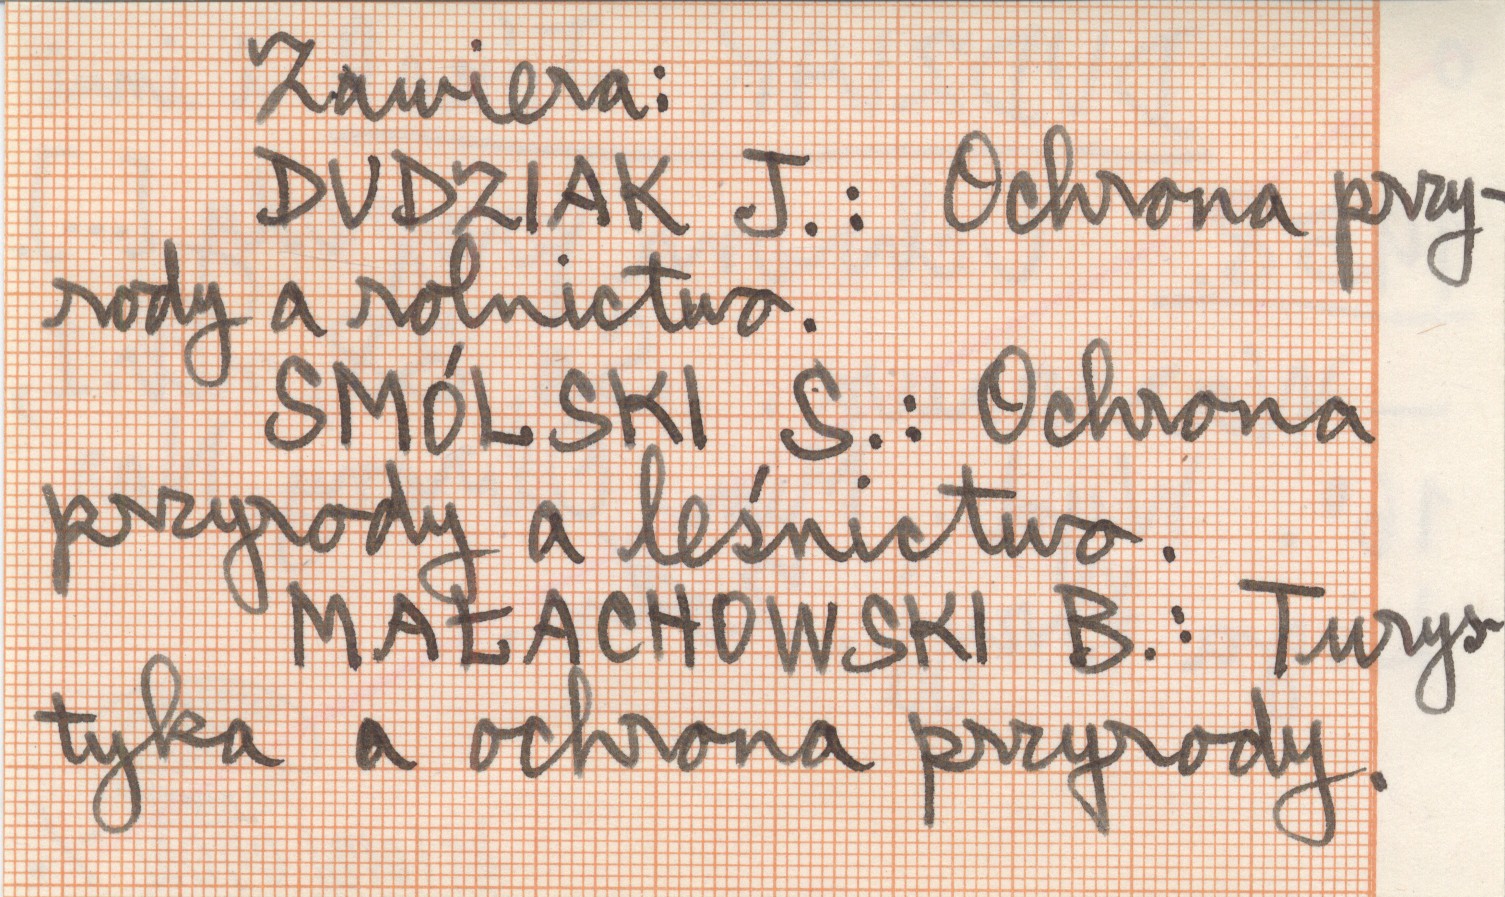 Zawiera:
DUDZIAK J.: Ochrona przy-
rody a rolnictwo.
SMÓLSKI S.: Ochrona
przyrody a leśnictwo.
MAŁACHOWSKI B.: Turys-
tyka a ochrona przyrody.